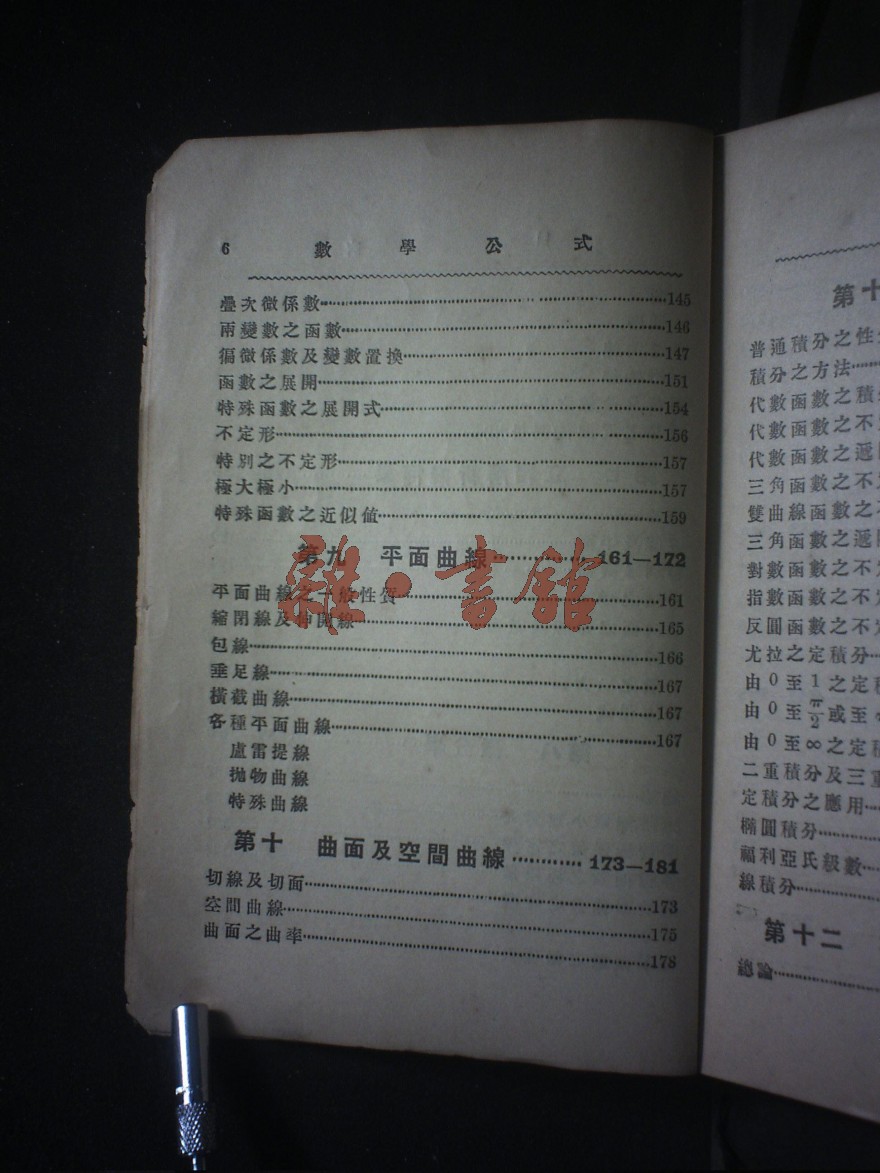 6 數學公式
疊次微係數……145
兩變數之函數……146
徧微係數及變數置換……147
函數之展開……151
特殊函數之展開式……154
不定形……156
特別之不定形……157
極大極小……157
特殊函數之近似値……159
第九 平面曲線……161—172
平面曲線之一般性質……161
縮閉線及伸開線……165
包線……166
垂足線……167
橫截曲線……167
各種平面曲線……167
盧雷提線
拋物曲線
特殊曲線
第十 曲面及空間曲線……173—181
切線及切面……173
空間曲線……175
曲面之曲率……178
雜·書館
第十
普通積分之性
積分之方法……
代數函數之積
代數函數之不
代數函數之遞
三角函數之不定
雙曲線函數之不
三角函數之遞
對數函數之不定
指數函數之不定
反圓函數之不定
尤拉之定積分……
由0至1之定積
由0至π/2或至
由0至∞之定積
二重積分及三重
定積分之應用……
橢圓積分……
福利亞氏級數……
線積分……
第十二
總論……